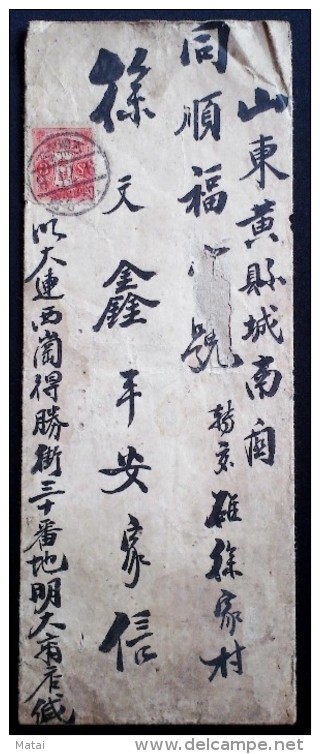 山東黃縣城南關
同順福號
轉交 徐家村
徐文鑫平安家信
大連西崗得勝街三十番地明大 店緘
Matai
www.delcampe.net